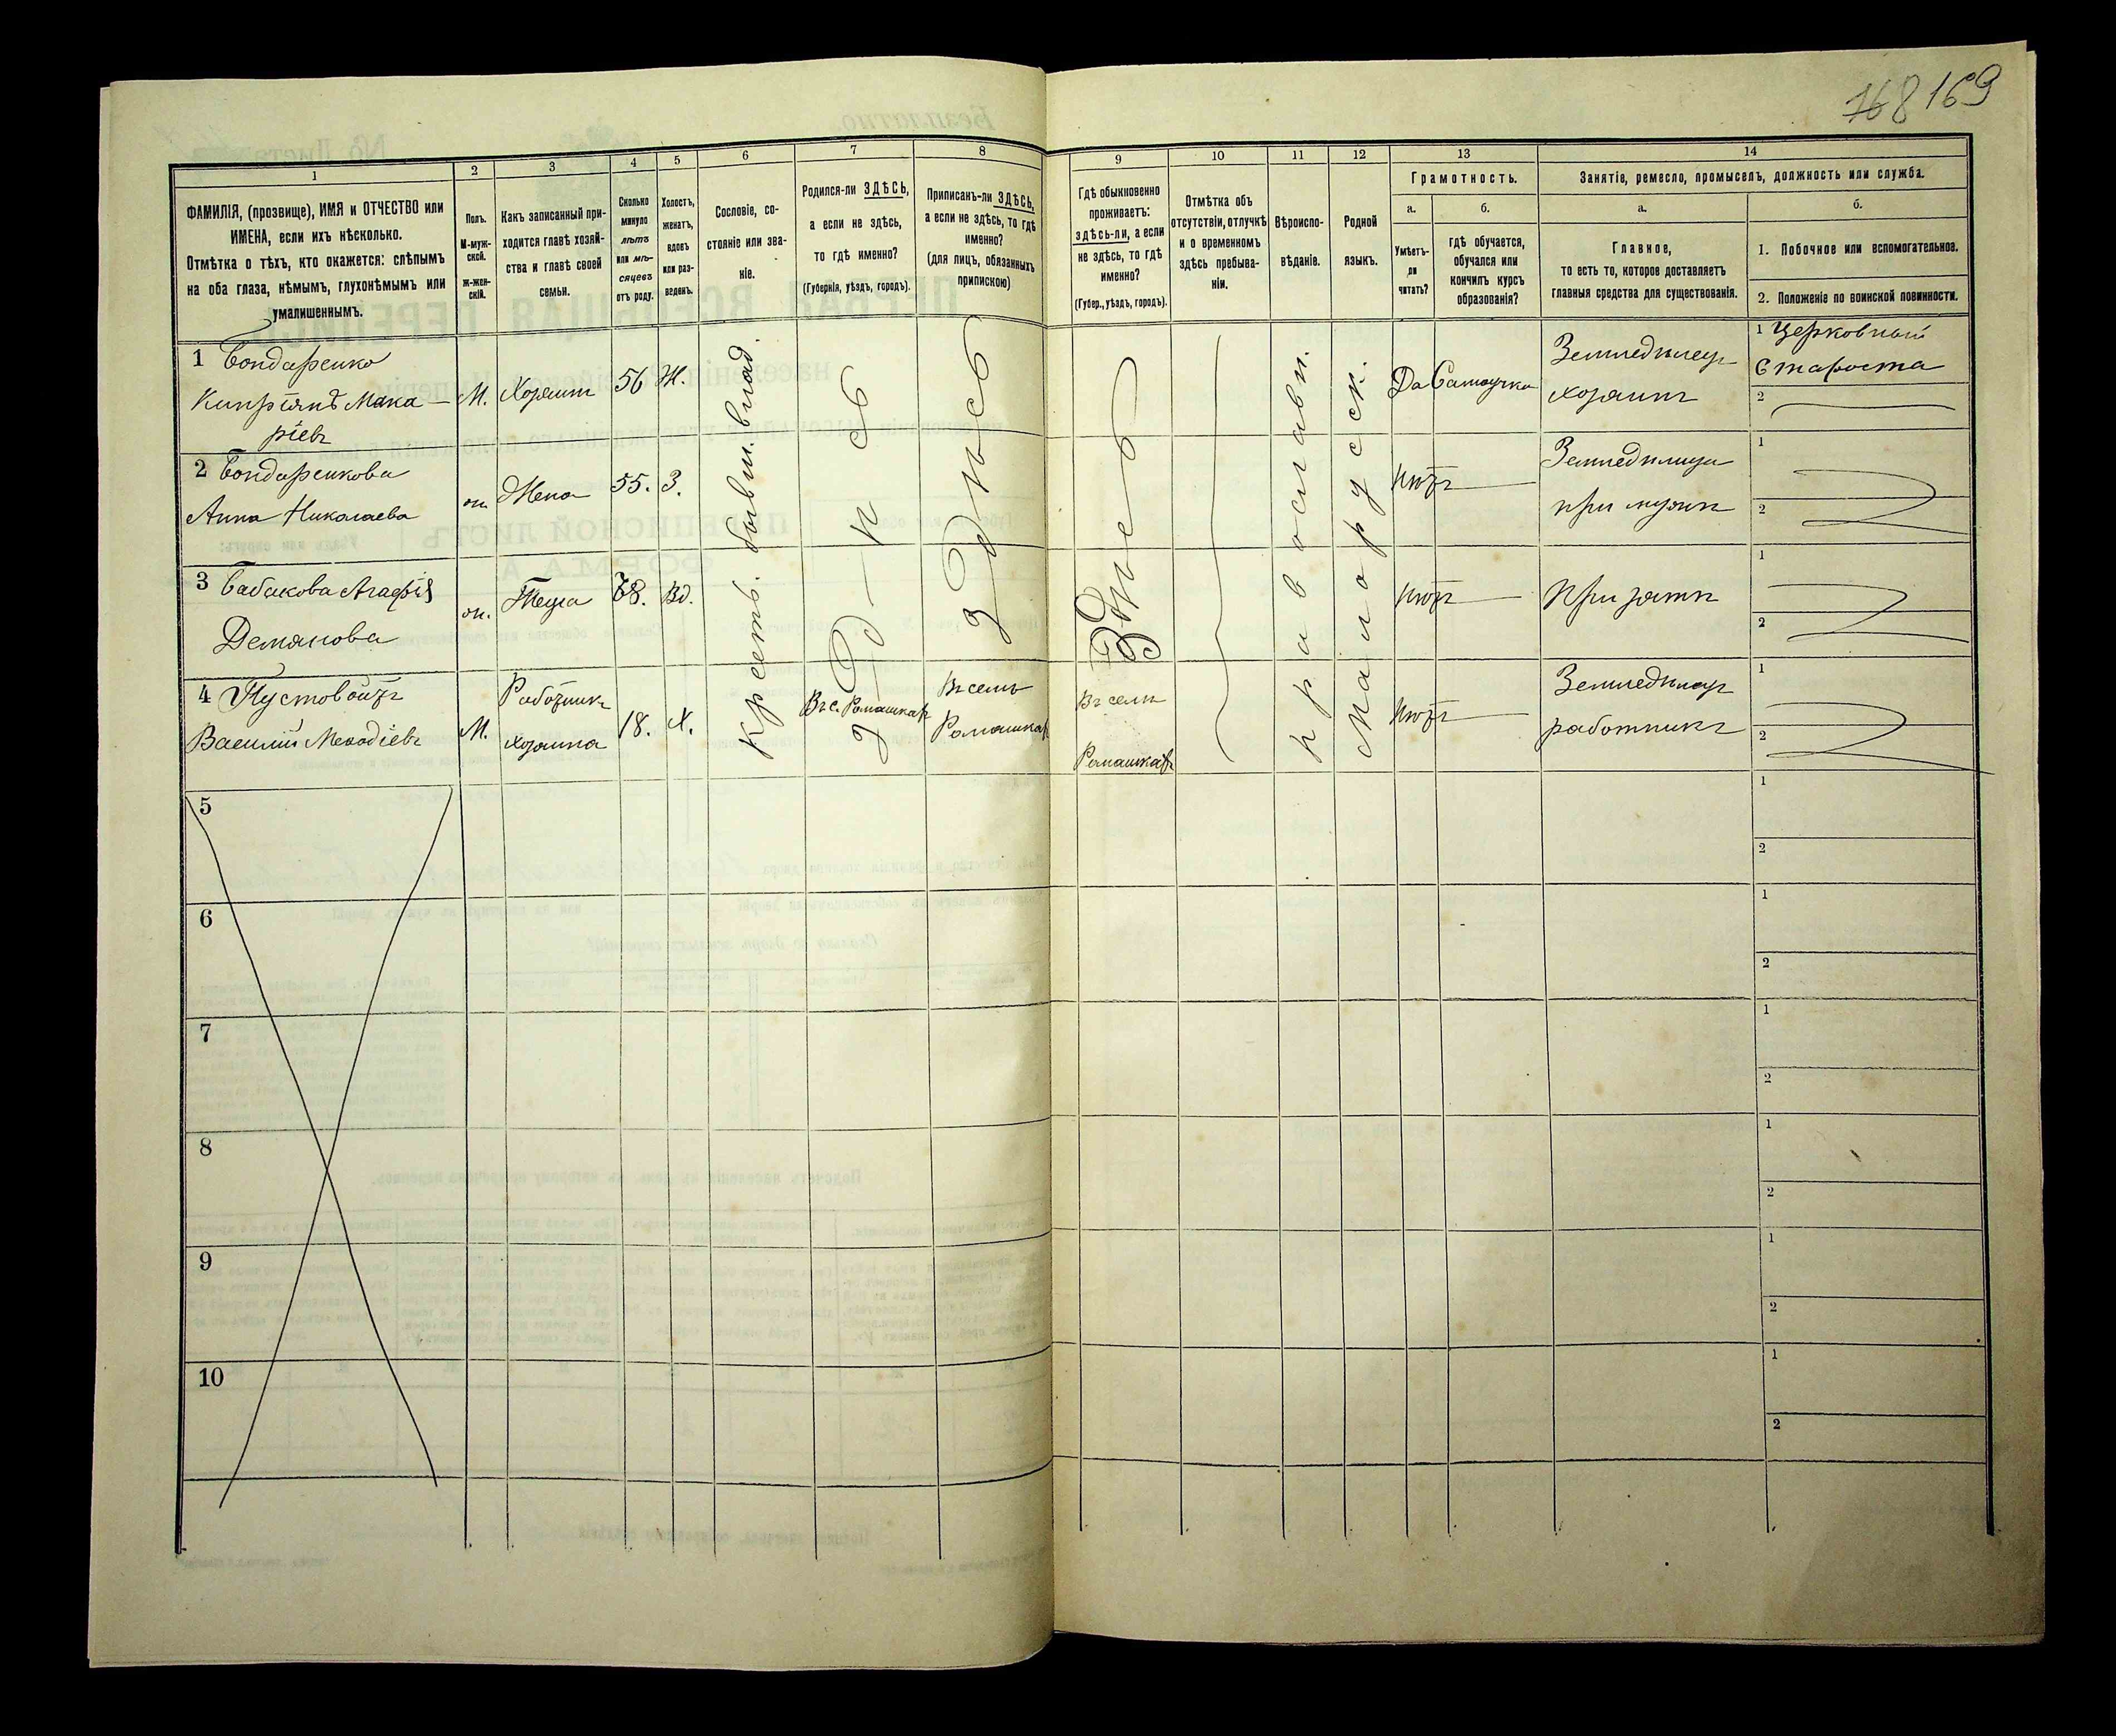 168 169
1
2
3
4
5
6
7
8
9
10
11
12
13
14
ФАМИЛІЯ, (прозвище), ИМЯ и ОТЧЕСТВО или
ИМЕНА, если ихъ нѣсколько.
Отмѣтка о тѣхъ, кто окажется: слѣпымъ
на оба глаза, нѣмымъ, глухонѣмымъ или
умалишеннымъ.
Полъ.
М-муж-
ской.
Ж-жен-
скій.
Какъ записанный при-
ходится главѣ хозяй-
ства и главѣ своей
семьи.
Сколько
минуло
лѣтъ
или мѣ-
сяцевъ
отъ роду.
Холостъ,
женатъ,
вдовъ
или раз-
веденъ.
Сословіе, со-
стояніе или зва-
ніе.
Родился-ли ЗДѢСЬ,
а если не здѣсь,
то гдѣ именно?
(Губернія, уѣздъ, городъ).
Приписанъ-ли ЗДѢСЬ,
а если не здѣсь, то гдѣ
именно?
(для лицъ, обязанныхъ
припискою)
Гдѣ обыкновенно
проживаетъ:
здѣсь-ли, а если
не здѣсь, то гдѣ
именно?
(Губер., уѣздъ, городъ).
Отмѣтка объ
отсутствіи, отлучкѣ
и о временномъ
здѣсь пребыва-
ніи.
Вѣроиспо-
вѣданіе.
Родной
языкъ.
Грамотность.
а.
б.
Умѣетъ-
ли
читать?
гдѣ обучается,
обучался или
кончилъ курсъ
образованія?
Занятіе, ремесло, промыселъ, должность или служба.
а.
б.
Главное,
то есть то, которое доставляетъ
главныя средства для существованія.
1. Побочное или вспомогательное.
2. Положеніе по воинской повинности.
1 Бондаренко
Кипріянъ Мака-
ріевъ
М.
Хозяинъ
56
Ж.
Крест. бывш. влад.
Здѣсь
Здѣсь
Здѣсь
Православн.
Малорусск.
Да
Самоучка
Земледѣлецъ
хозяинъ
1 Церковный
Староста
2
2 Бондаренкова
Анна Николаева
ж.
Жена
55.
З.
Нѣтъ
Земледѣлица
при мужѣ
1
2
3 Бабакова Агафія
Демянова
ж.
Теща
78.
Вд.
Нѣтъ
При зятѣ
1
2
4 Пустовойтъ
Василій Меѳодіевъ
М.
Работникъ
хозяина
18.
Х.
Въ с. Ромашкахъ
Въ селѣ
Ромашкахъ
Въ селѣ
Ромашкахъ
Нѣтъ
Земледѣлецъ
работникъ
1
2
5
1
2
6
1
2
7
1
2
8
1
2
9
1
2
10
1
2